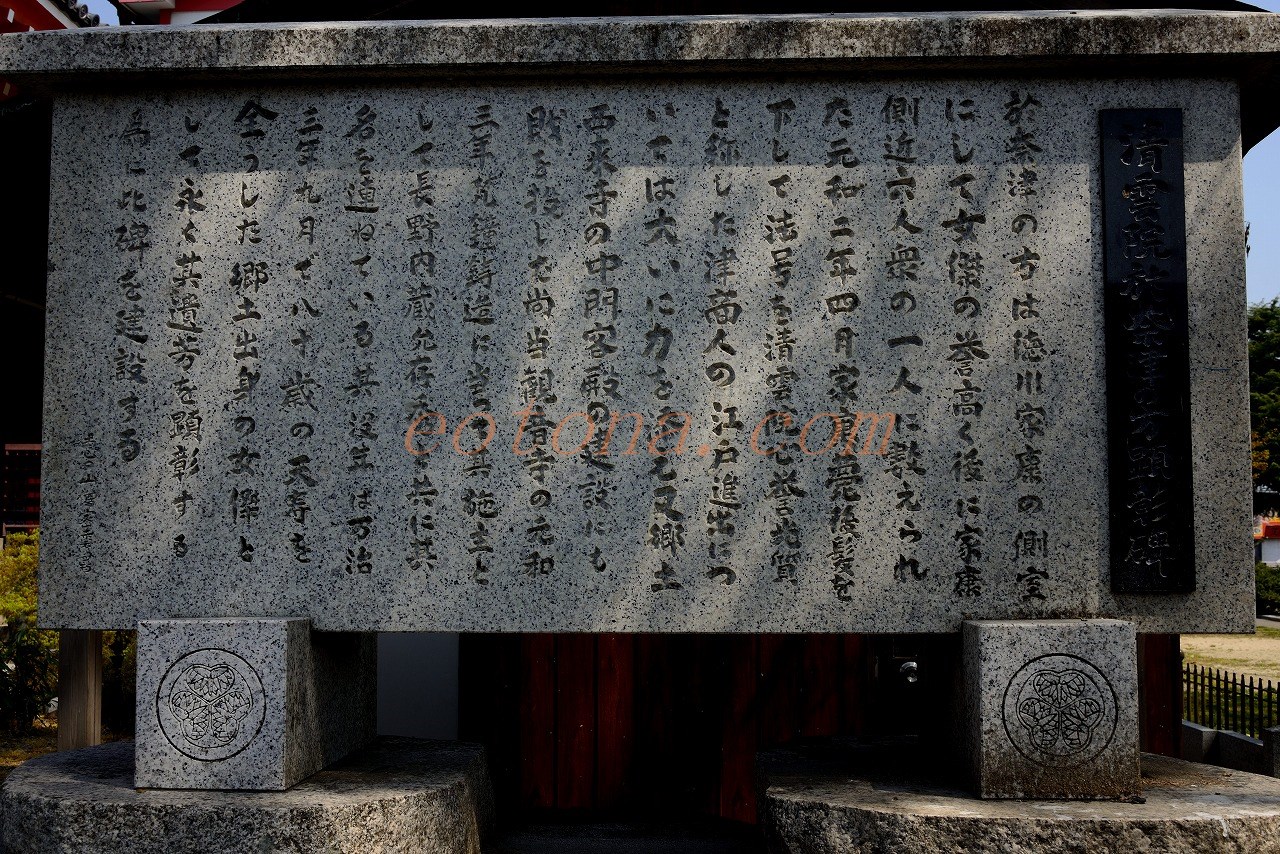 清雲院於奈津の方顕彰碑
於奈津の方は徳川家康の側室
にして女傑の誉高く後に家康
側近六人衆の一人に数えられ
た元和二年四月家康薨後髪を
下して法号を清雲院心誉光質
と称した津商人の江戸進出につ
いては大いに力を 又郷土
西来寺の中門客殿の建設にも
財を投じ尚当観音寺の元和
三年梵鐘鋳造に当って其施主と
して長野内蔵允 共に其
名を連ねている其没年は万治
三年九月で八十歳の天寿を
全うした郷土出身の女傑と
して永く其遺芳を顕彰する
為に此碑を建設する
eotona.com